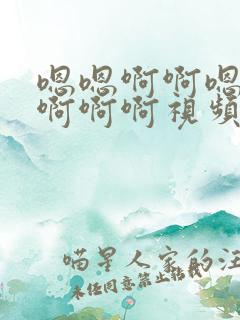 嗯嗯啊啊嗯
啊啊啊視頻
喵星人家的汪
未经同意禁止转载